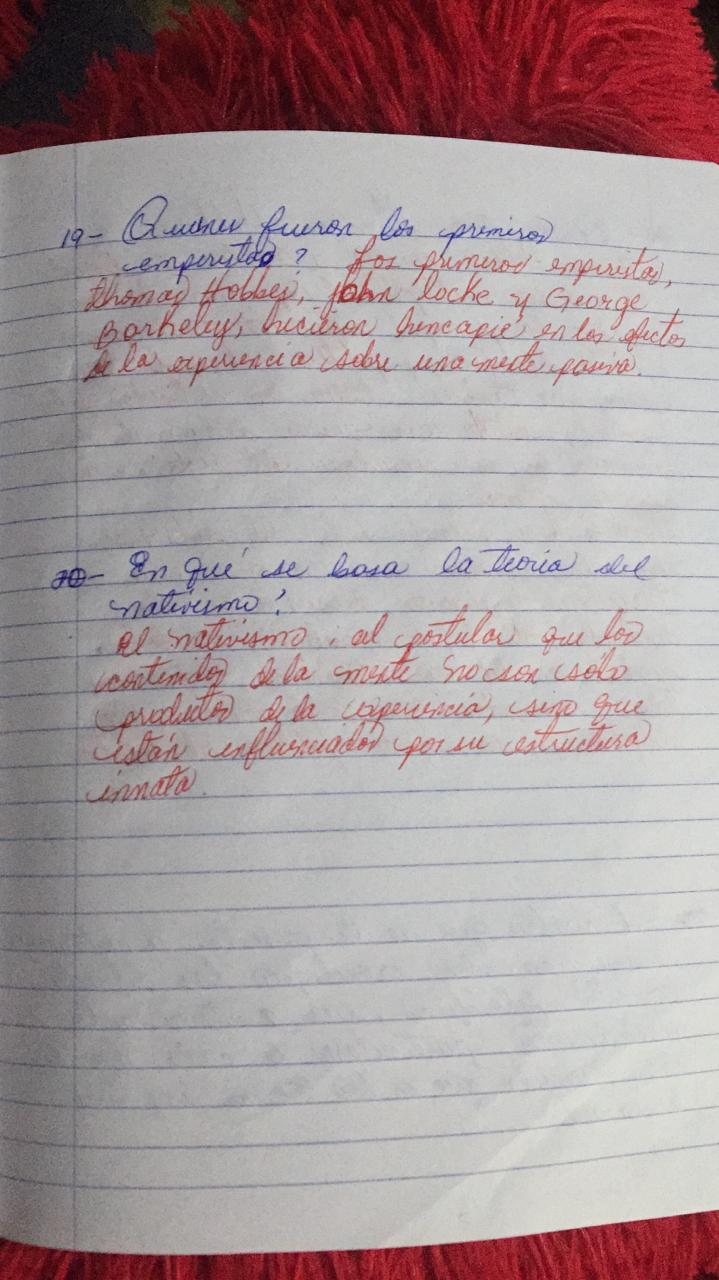 19- Quienes fueron los primeros
emperistas? Los primeros emperistas,
Thomas Hobbes, john locke y George
Barkeley, hicieron hencapie en los efectos
de la experiencia sobre una mente pasiva.
20- En qué se basa la teoria del
nativismo?
el nativismo. al postular que los
contenidos de la mente no son solo
productos de la experiencia, sino que
están influenciados por su estructura
innata.